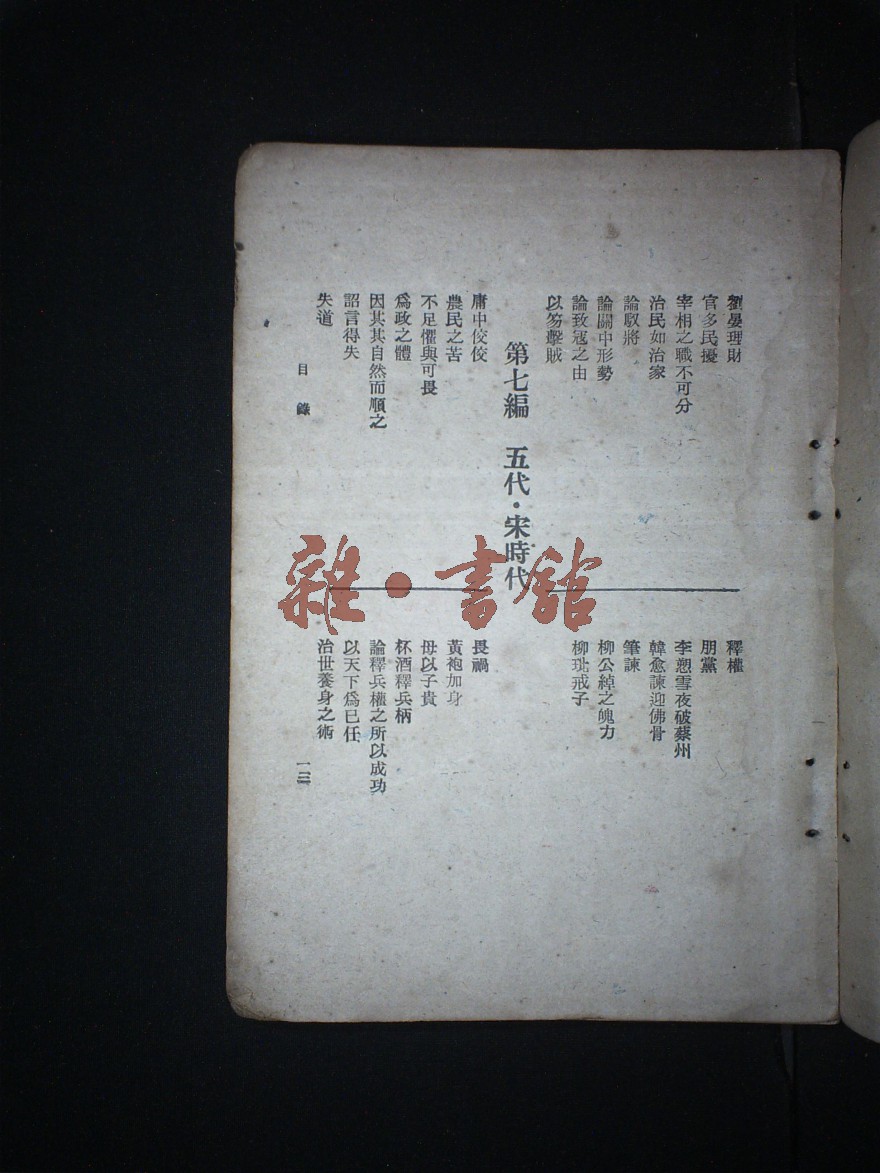 劉晏理財
官多民擾
宰相之職不可分
治民如治家
論馭將
論關中形勢
論致寇之由
以笏擊賊
釋權
朋黨
李愬雪夜破蔡州
韓愈諫迎佛骨
筆諫
柳公綽之魄力
柳玭戒子
第七編　五代・宋時代
庸中佼佼
農民之苦
不足懼與可畏
爲政之體
因其其自然而順之
詔言得失
失道
畏禍
黃袍加身
母以子貴
杯酒釋兵柄
論釋兵權之所以成功
以天下爲己任
治世養身之術
目錄
一三
雜・書館